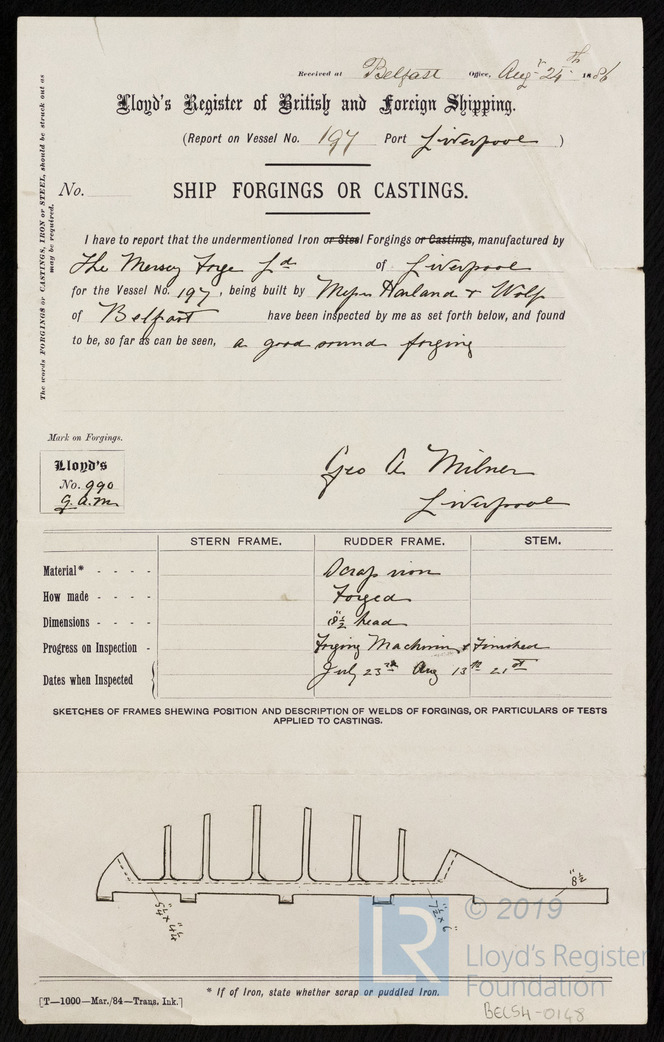 Received at Belfast Office, Augt 24th 1886
Lloyd's Register of British and Foreign Shipping.
(Report on Vessel No. 197 Port Liverpool )
No. SHIP FORGINGS OR CASTINGS.
The words FORGINGS or CASTINGS, IRON or STEEL, should be struck out as
may be required.
I have to report that the undermentioned Iron or Steel Forgings or Castings, manufactured by
The Mersey Forge Ld of Liverpool
for the Vessel No. 197, being built by Messrs Harland & Wolf
of Belfast have been inspected by me as set forth below, and found
to be, so far as can be seen, a good sound forging
Mark on Forgings.
Lloyd's
No. 990
G.A.M.
Geo A Milner
Liverpool
STERN FRAME. RUDDER FRAME. STEM.
Material* - - - - Scrap iron
How made - - - - Forged
Dimensions - - - - 8½" head
Progress on Inspection - Forging Machining & Finished
Dates when Inspected July 23rd Aug 13th 21st
SKETCHES OF FRAMES SHEWING POSITION AND DESCRIPTION OF WELDS OF FORGINGS, OR PARTICULARS OF TESTS
APPLIED TO CASTINGS.
8½"
7½ x 6"
© 2019
LR
Lloyd's Register
Foundation
* If of Iron, state whether scrap or puddled Iron.
[T—1000—Mar./84—Trans. Ink.]
BEL54-0148